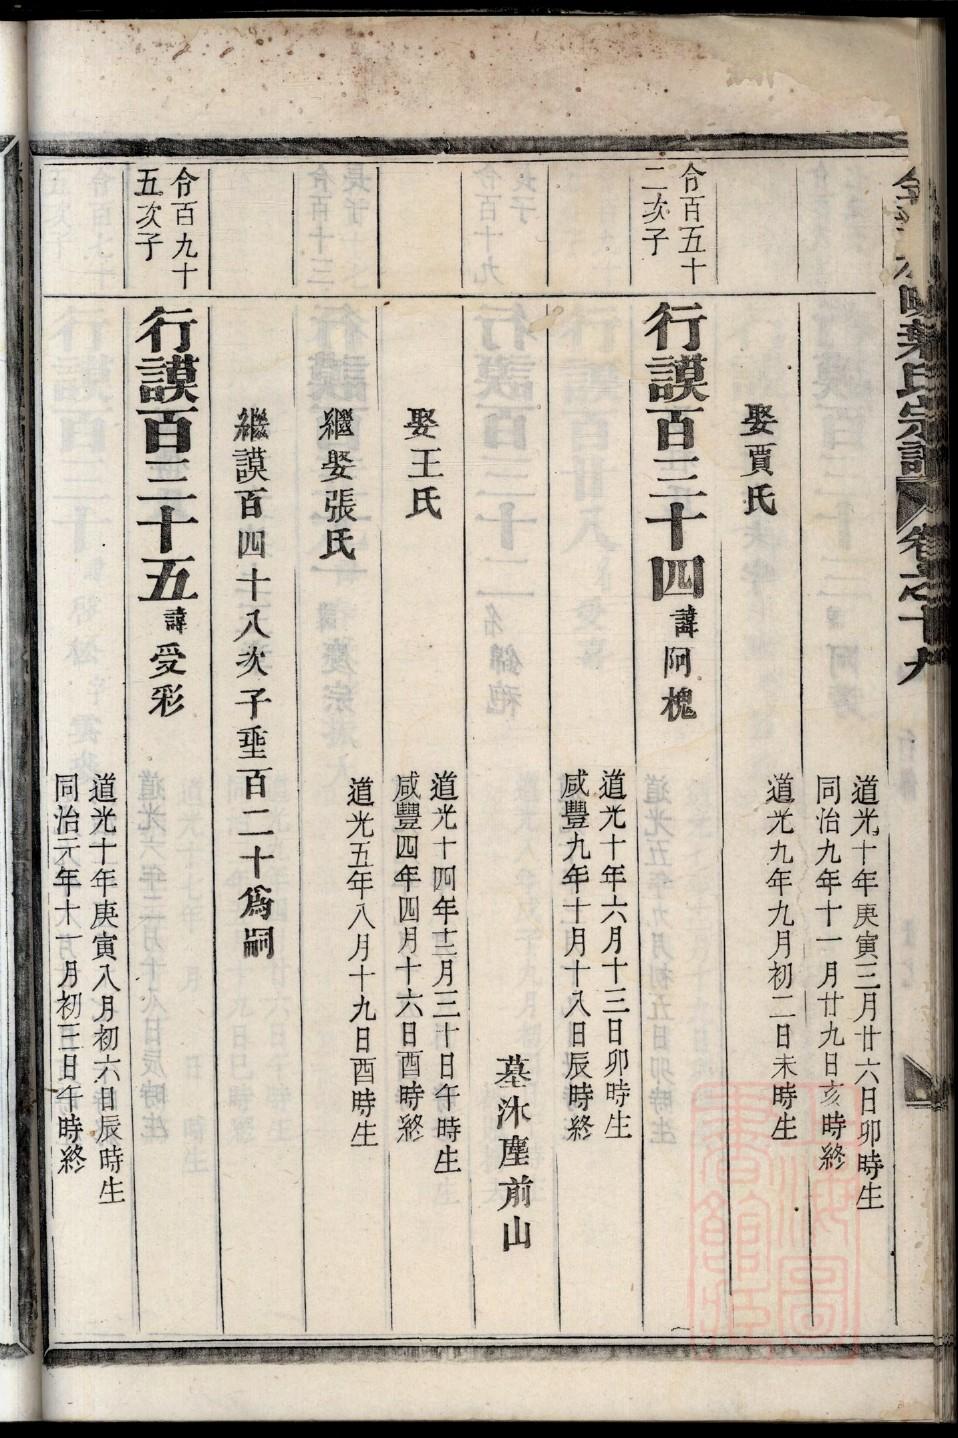 葉氏宗譜
卷之十九
道光十年庚寅三月廿六日卯時生
同治九年十一月廿九日亥時終
娶賈氏
道光九年九月初二日未時生
令百五十
二次子
行謨百三十四諱阿槐
道光十年六月十三日卯時生
咸豐九年十月十八日辰時終
墓沐塵前山
娶王氏
道光十四年十二月三十日午時生
咸豐四年四月十六日酉時終
繼娶張氏
道光五年八月十九日酉時生
繼謨百四十八次子垂百二十爲嗣
令百九十
五次子
行謨百三十五諱受彩
道光十年庚寅八月初六日辰時生
同治元年十一月初三日午時終